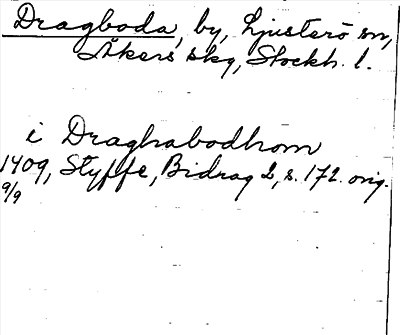 Dragboda, by, Ljusterö sn,
Åkers skg, Stockh. l.
i Draghabodhom
1409, Styffe, Bidrag 2, s. 172. orig.
9/9